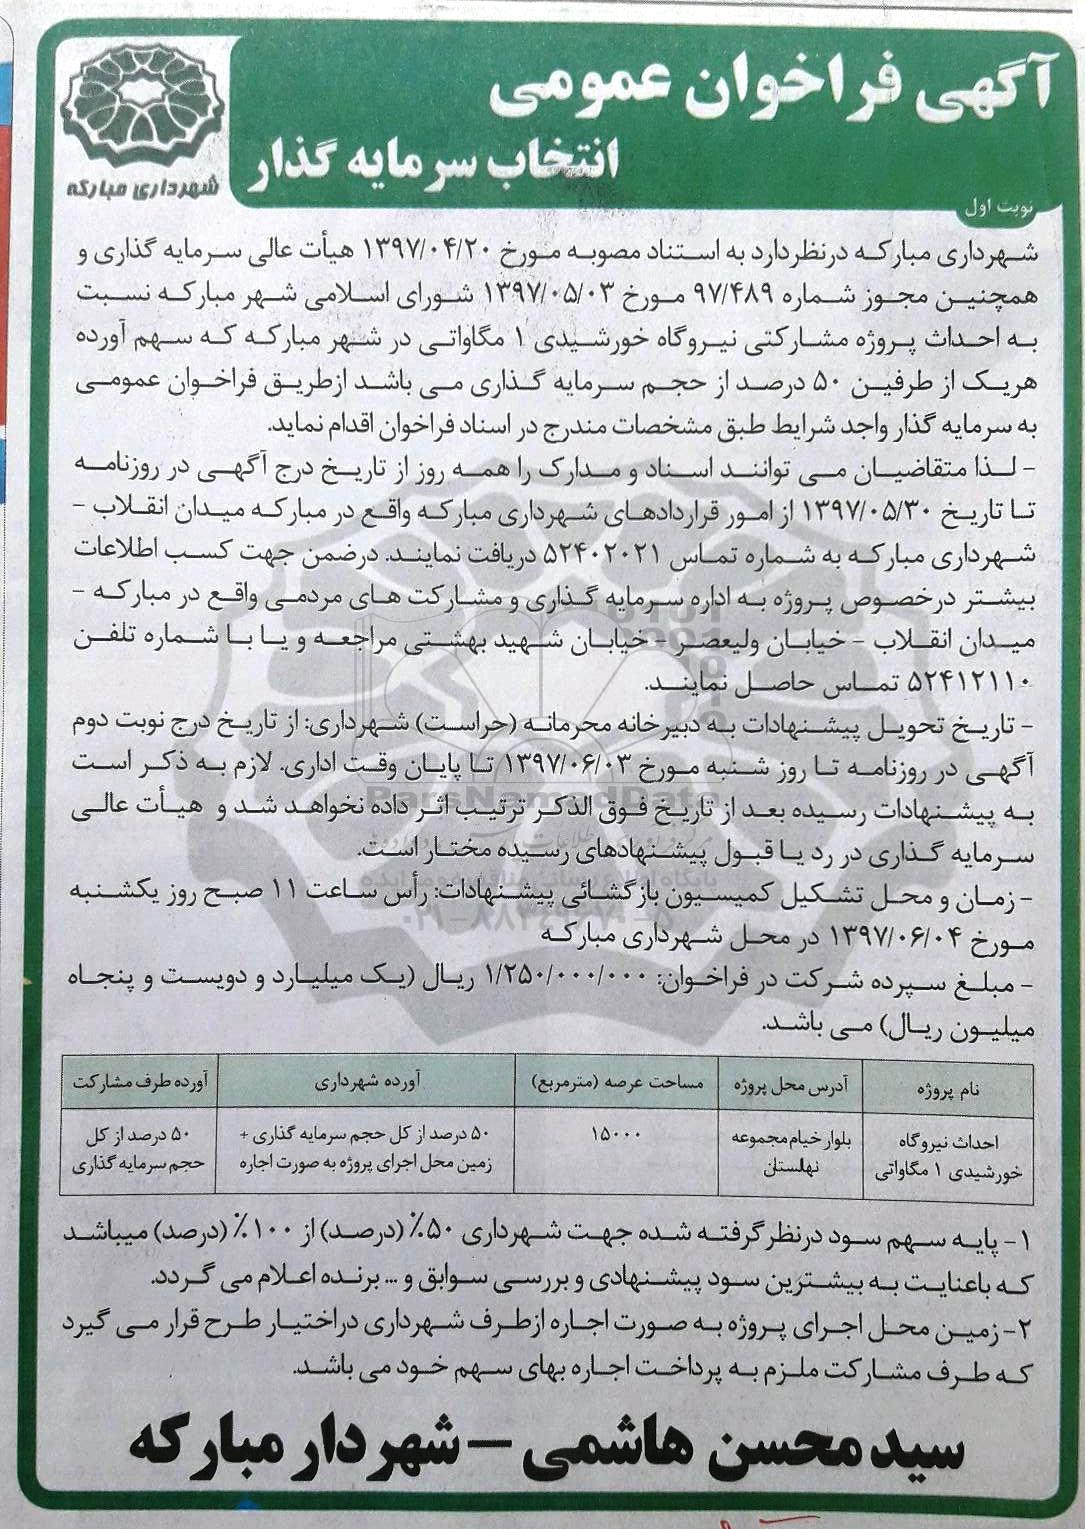 آگهی فراخوان عمومی
انتخاب سرمایه گذار
شهرداری مبارکه
نوبت اول
شهرداری مبارکه درنظردارد به استناد مصوبه مورخ ۱۳۹۷/۰۴/۲۰ هیأت عالی سرمایه گذاری و
همچنین مجوز شماره ۹۷/۴۸۹ مورخ ۱۳۹۷/۰۵/۰۳ شورای اسلامی شهر مبارکه نسبت
به احداث پروژه مشارکتی نیروگاه خورشیدی ۱ مگاواتی در شهر مبارکه که سهم آورده
هریک از طرفین ۵۰ درصد از حجم سرمایه گذاری می باشد ازطریق فراخوان عمومی
به سرمایه گذار واجد شرایط طبق مشخصات مندرج در اسناد فراخوان اقدام نماید.
- لذا متقاضیان می توانند اسناد و مدارک را همه روز از تاریخ درج آگهی در روزنامه
تا تاریخ ۱۳۹۷/۰۵/۳۰ از امور قراردادهای شهرداری مبارکه واقع در مبارکه میدان انقلاب -
شهرداری مبارکه به شماره تماس ۵۲۴۰۲۰۲۱ دریافت نمایند. درضمن جهت کسب اطلاعات
بیشتر درخصوص پروژه به اداره سرمایه گذاری و مشارکت های مردمی واقع در مبارکه -
میدان انقلاب - خیابان ولیعصر - خیابان شهید بهشتی مراجعه و یا با شماره تلفن
۵۲۴۱۲۱۱۰ تماس حاصل نمایند.
- تاریخ تحویل پیشنهادات به دبیرخانه محرمانه (حراست) شهرداری: از تاریخ درج نوبت دوم
آگهی در روزنامه تا روز شنبه مورخ ۱۳۹۷/۰۶/۰۳ تا پایان وقت اداری. لازم به ذکر است
ParsNamadData
به پیشنهادات رسیده بعد از تاریخ فوق الذکر ترتیب اثر داده نخواهد شد و هیأت عالی
سرمایه گذاری در رد یا قبول پیشنهادهای رسیده مختار است.
- زمان و محل تشکیل کمیسیون بازگشائی پیشنهادات: رأس ساعت ۱۱ صبح روز یکشنبه
مورخ ۱۳۹۷/۰۶/۰۴ در محل شهرداری مبارکه
- مبلغ سپرده شرکت در فراخوان: ۱/۲۵۰/۰۰۰/۰۰۰ ریال (یک میلیارد و دویست و پنجاه
میلیون ریال) می باشد.
نام پروژه | آدرس محل پروژه | مساحت عرصه (مترمربع) | آورده شهرداری | آورده طرف مشارکت
احداث نیروگاه | بلوار خیام مجموعه | ۱۵۰۰۰ | ۵۰ درصد از کل حجم سرمایه گذاری + | ۵۰ درصد از کل
خورشیدی ۱ مگاواتی | نهالستان | زمین محل اجرای پروژه به صورت اجاره | حجم سرمایه گذاری
۱- پایه سهم سود درنظرگرفته شده جهت شهرداری ۵۰٪ (درصد) از ۱۰۰٪ (درصد) میباشد
که باعنایت به بیشترین سود پیشنهادی و بررسی سوابق و ... برنده اعلام می گردد.
۲- زمین محل اجرای پروژه به صورت اجاره ازطرف شهرداری دراختیار طرح قرار می گیرد
که طرف مشارکت ملزم به پرداخت اجاره بهای سهم خود می باشد.
سید محسن هاشمی - شهردار مبارکه